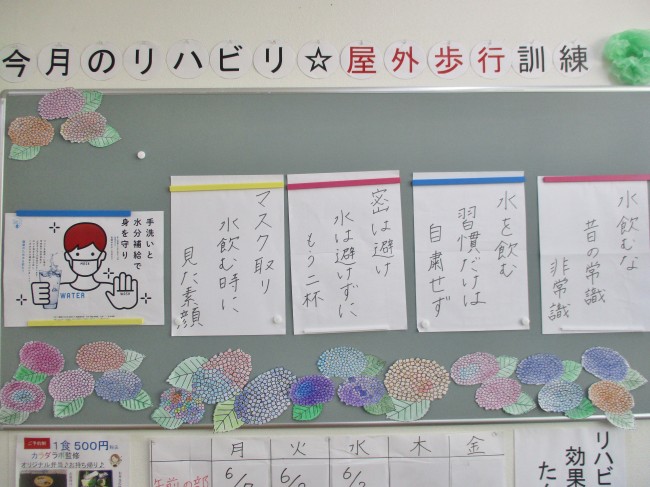 今月のリハビリ☆屋外歩行訓練
水飲むな
昔の常識
非常識
水を飲む
習慣だけは
自粛せず
密は避け
水は避けずに
もう二杯
マスク取り
水飲む時に
見た素顔
手洗いと
水分補給で
身を守り
WATER
1食500円
カラダラボ監修
オリジナル弁当♪お持ち帰り♪
月 火 水 木 金
午前の部
リハビ
効果
たん